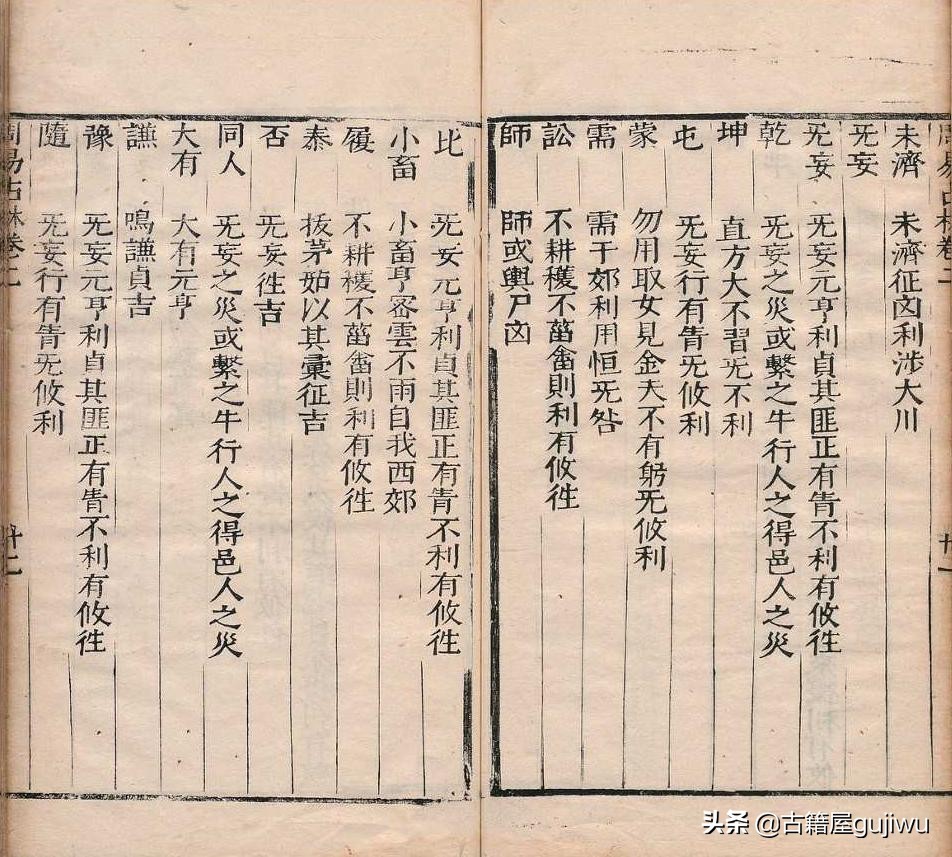 未濟 未濟征凶利涉大川
无妄
无妄 无妄元亨利貞其匪正有眚不利有攸徃
乾 无妄之災或繫之牛行人之得邑人之災
坤 直方大不習无不利
屯 无妄行有眚无攸利
蒙 勿用取女見金夫不有躬无攸利
需 需于郊利用恒无咎
訟 不耕穫不菑畬則利有攸徃
師 師或輿尸凶
比 无妄元亨利貞其匪正有眚不利有攸徃
小畜 小畜亨密雲不雨自我西郊
履 不耕穫不菑畬則利有攸徃
泰 拔茅茹以其彙征吉
否 无妄徃吉
同人 无妄之災或繫之牛行人之得邑人之災
大有 大有元亨
謙 鳴謙貞吉
豫 无妄元亨利貞其匪正有眚不利有攸徃
隨 无妄行有眚无攸利
头条 @古籍屋gujiwu